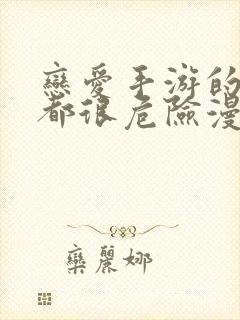 戀愛手游的
都很危險漫
欒麗娜